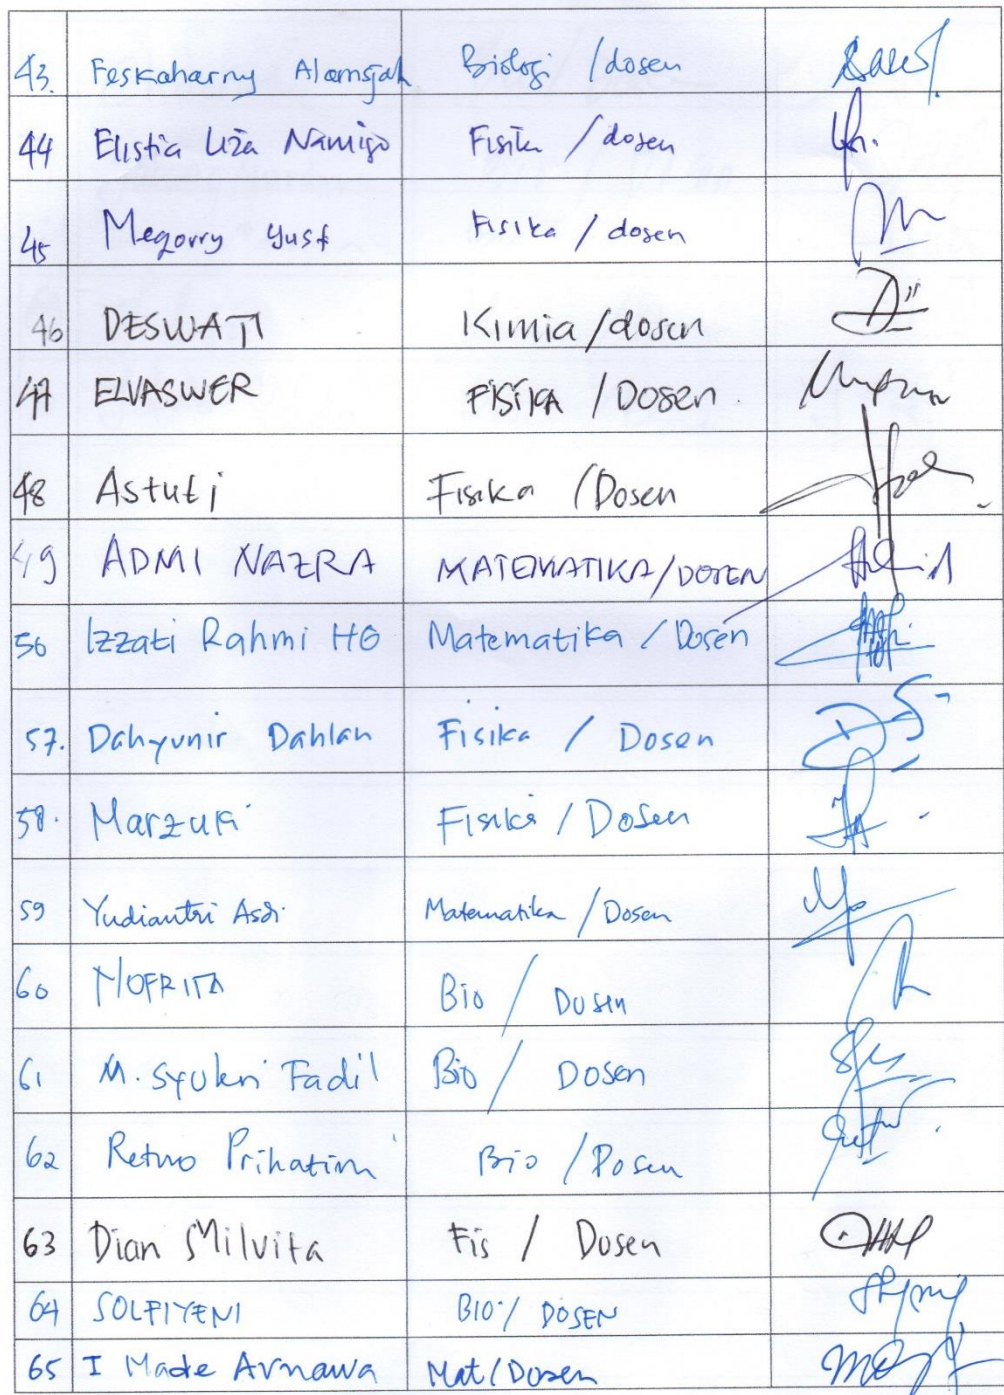 43. Feskaharny Alamsjah Biologi / dosen
44 Elistia Liza Namigo Fisika / dosen
45 Megorry Yusf Fisika / dosen
46 DESWATI Kimia / dosen
47 ELVASWER FISIKA / Dosen
48 Astuti Fisika / Dosen
49 ADMI NAZRA MATEMATIKA / DOSEN
56 Izzati Rahmi HG Matematika / Dosen
57. Dahyunir Dahlan Fisika / Dosen
58. Marzuki Fisika / Dosen
59 Yudiantri Asdi Matematika / Dosen
60 MOFRITA Bio / Dosen
61 M. Syukri Fadil Bio / Dosen
62 Retno Prihatini Bio / Dosen
63 Dian Milvita Fis / Dosen
64 SOLFIYENI BIO / DOSEN
65 I Made Arnawa Mat / Dosen